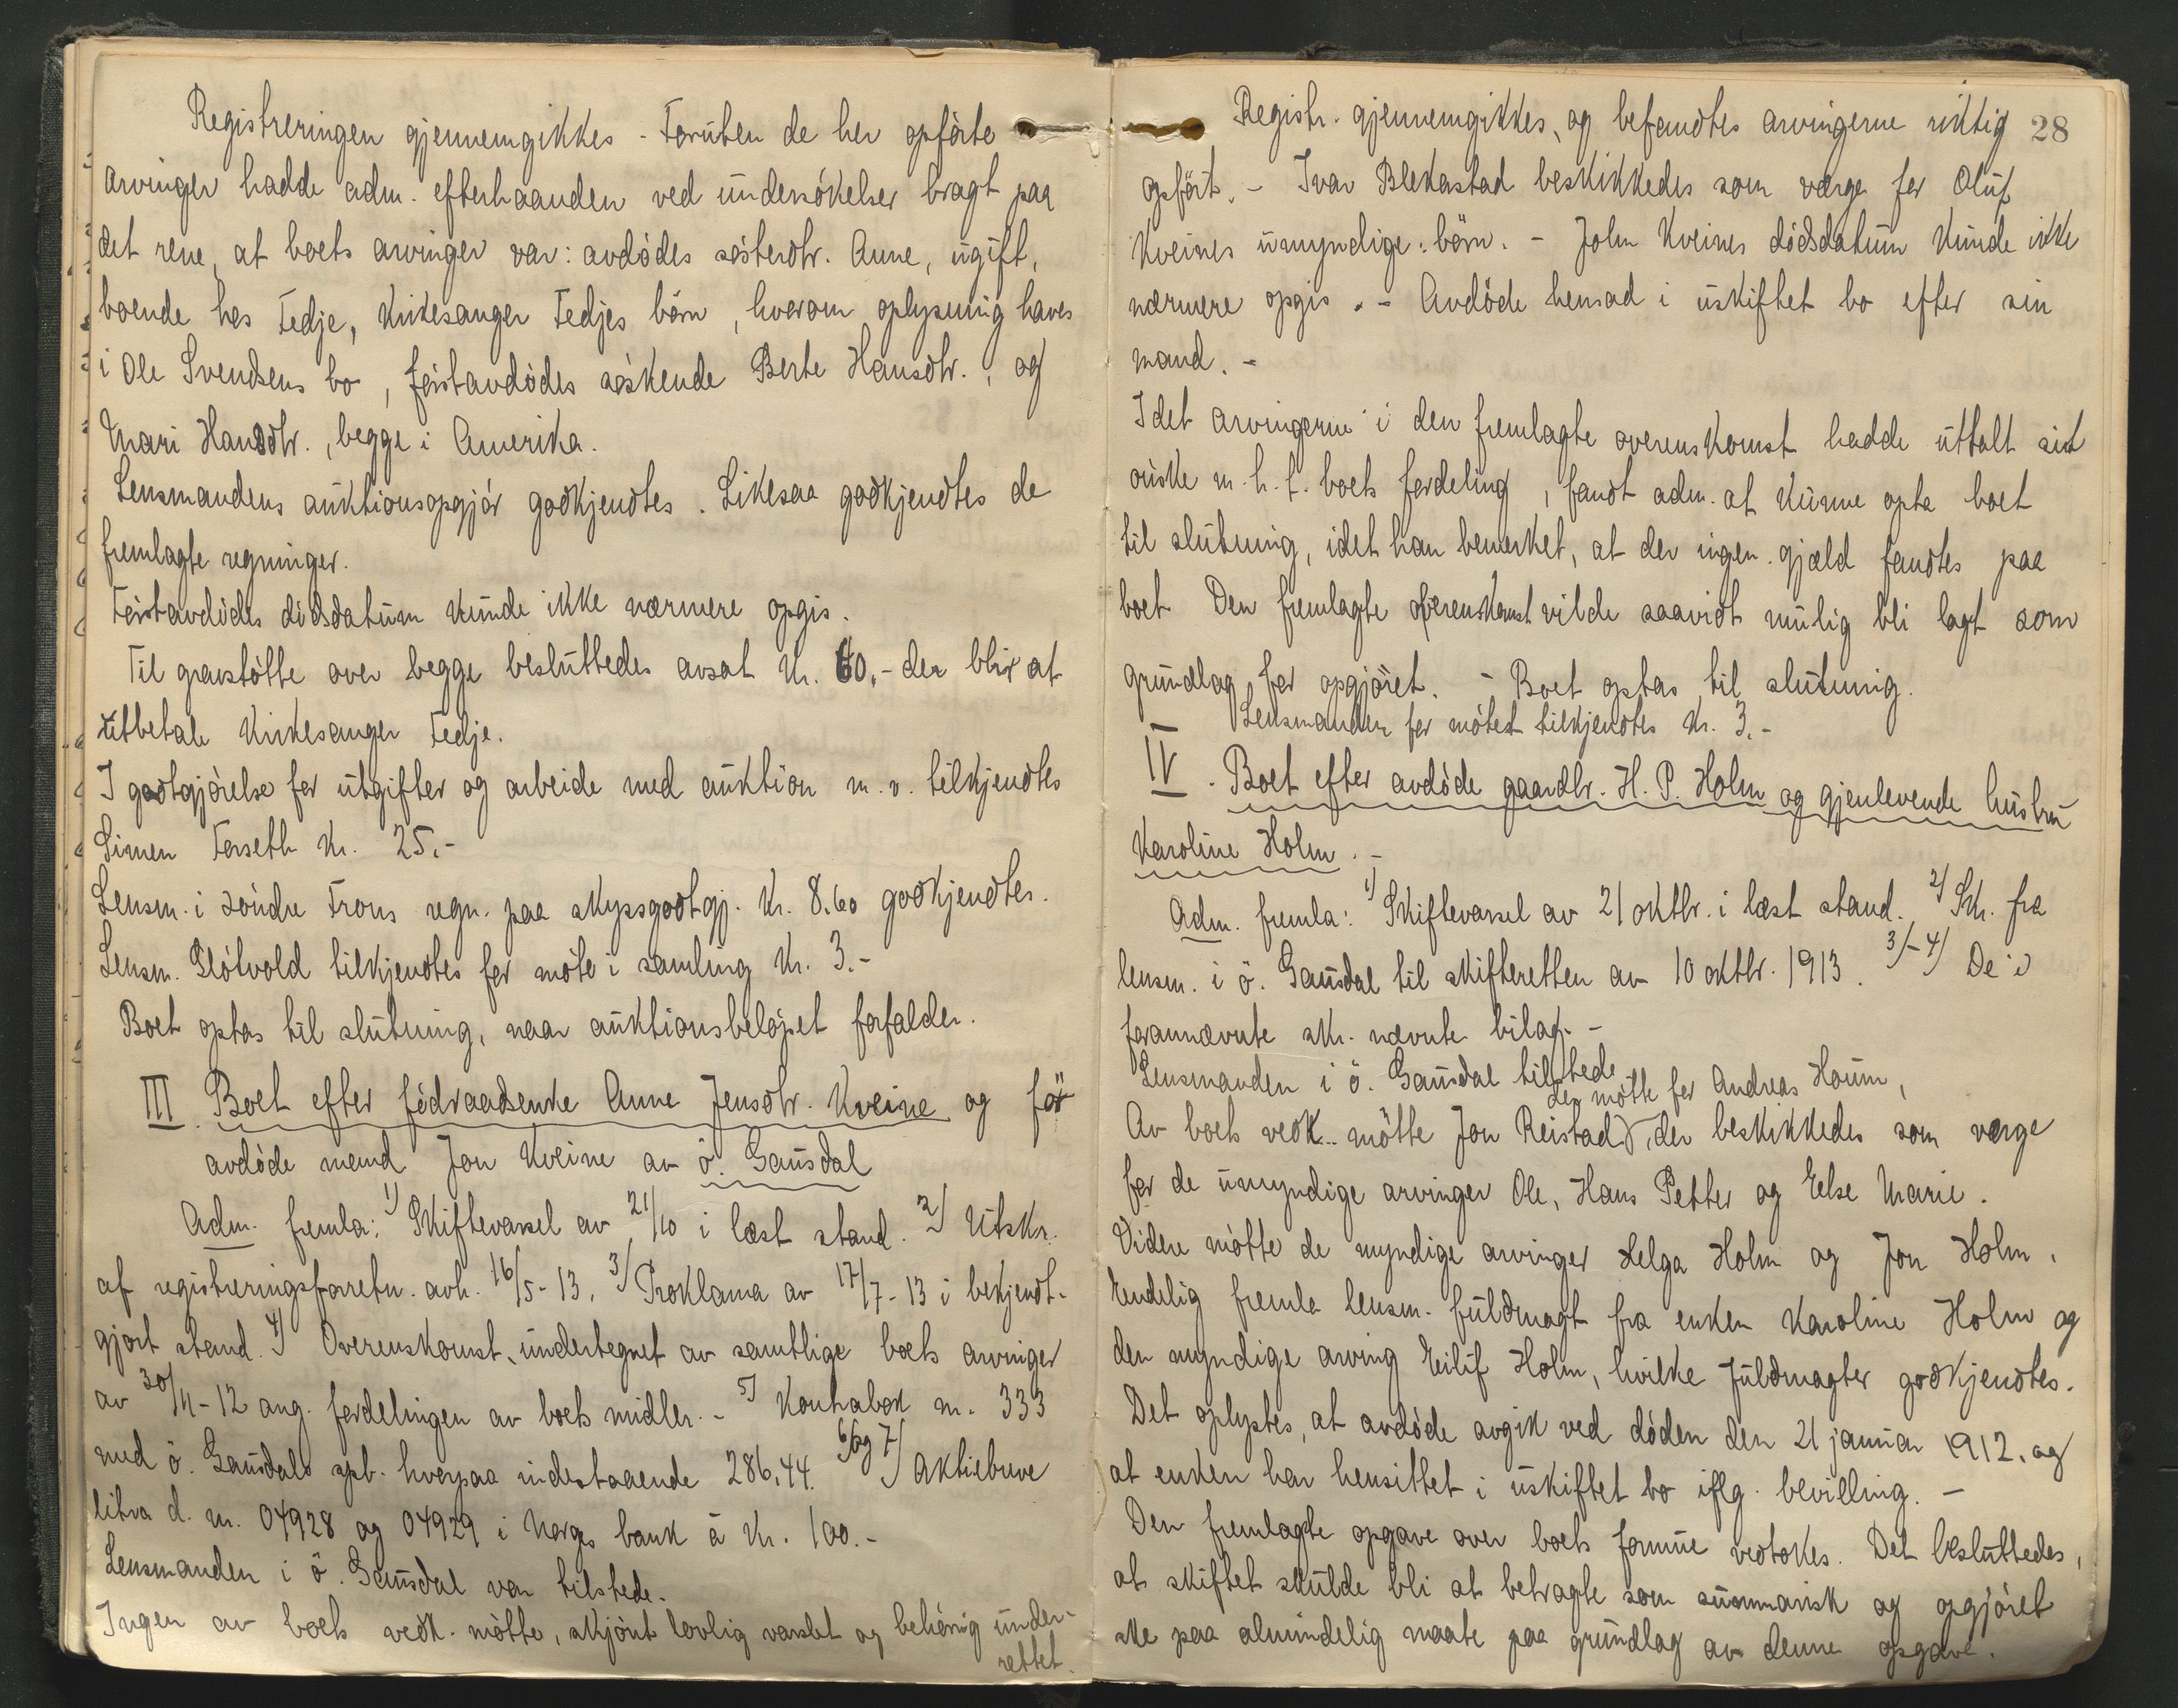 Registreringen gjennemgikkes - Foruten de her opførte
arvinger hadde adm. efterhaanden ved undersøkelser bragt paa
det rene, at boets arvinger var: avdødes søsterdtr. Anne, ugift,
boende hos Fedje, kirkesanger Fedjes børn, hvorom oplysning haves
i Ole Svendsens bo, førstavdødes søskende Berte Hansdtr., og
Mari Hansdtr., begge i Amerika.
Lensmandens auktionsopgjør godkjendtes. Likesaa godkjendtes de
fremlagte regninger.
Førstavdødes dødsdatum kunde ikke nærmere opgis.
Til gravstøtte over begge besluttedes avsat kr. 60.- der blir at
utbetale kirkesanger Fedje.
I godtgjørelse for utgifter og arbeide med auktion m.v. tilkjendtes
Simen Forseth kr. 25.-
Lensm. i søndre Frons regn. paa skyssgodtgj. kr. 8.60 godkjendtes.
Lensm. Fløtvold tilkjendtes for møte i samling kr. 3.-
Boet optas til slutning, naar auktionsbeløpet forfalder.
III. Boet efter födraadsenke Anne Jensdtr. Kveine og før
avdøde mand Jon Kveine av ö. Gausdal
Adm. fremla: 1) Skiftevarsel av 21/10 i læst stand. 2) Utskr.
af registreringsforretn. avh. 16/5-13. 3) Proklama av 17/7-13 i bekjendt-
gjort stand. 4) Overenskomst, undertegnet av samtlige boets arvinger
av 30/11-12 ang. fordelingen av boets midler. - 5) Kontrabok nr. 333
med ö. Gausdals spb. hvorpaa indestaaende 286,44. 6) og 7) Aktiebreve
litra d. nr. 04928 og 04929 i Norges bank à kr. 100.-
Lensmanden i ö. Gausdal var tilstede.
Ingen av boets vedk. møtte, skjønt lovlig varslet og behørig under-
rettet.
28
Registr. gjennemgikkes, og befandtes arvingerne riktig
opført. - Ivar Blekastad beskikkedes som værge for Oluf
Kveines umyndige børn. - John Kveines dødsdatum kunde ikke
nærmere opgis. - Avdøde hensad i uskiftet bo efter sin
mand. -
Idet arvingerne i den fremlagte overenskomst hadde uttalt sit
ønske m.h.t. boets fordeling, fandt adm. at kunne opta boet
til slutning, idet han bemerket, at der ingen gjæld fandtes paa
boet Den fremlagte overenskomst vilde saavidt mulig bli lagt som
grundlag for opgjøret. - Boet optas til slutning.
Lensmanden for møtet tilkjendtes kr. 3.-
IV. Boet efter avdøde gaardbr. H. P. Holm og gjenlevende hustru
Karoline Holm. -
Adm. fremla: 1) Skiftevarsel av 21 oktbr. i læst stand. 2) Skr. fra
lensm. i ö. Gausdal til skifteretten av 10 oktbr. 1913. 3)-4) De i
forannævnte skr. nævnte bilag. -
Lensmanden i ö. Gausdal tilstede
der møtte for Andreas Houm,
Av boets vedk. møtte Jon Reistad, der beskikkedes som værge
for de umyndige arvinger Ole, Hans Petter og Else Marie.
Videre møtte de myndige arvinger Helga Holm og Jon Holm.
Endelig fremla lensm. fuldmagt fra enken Karoline Holm og
den myndige arving Eilif Holm, hvilke fuldmagter godkjendtes.
Det oplystes, at avdøde avgik ved døden den 21 januar 1912. og
at enken har hensittet i uskiftet bo iflg. bevilling. -
Den fremlagte opgave over boets formue vedtokes. Det besluttedes,
at skiftet skulde bli at betragte som summarisk og opgjøret
ske paa almindelig maate paa grundlag av denne opgave.